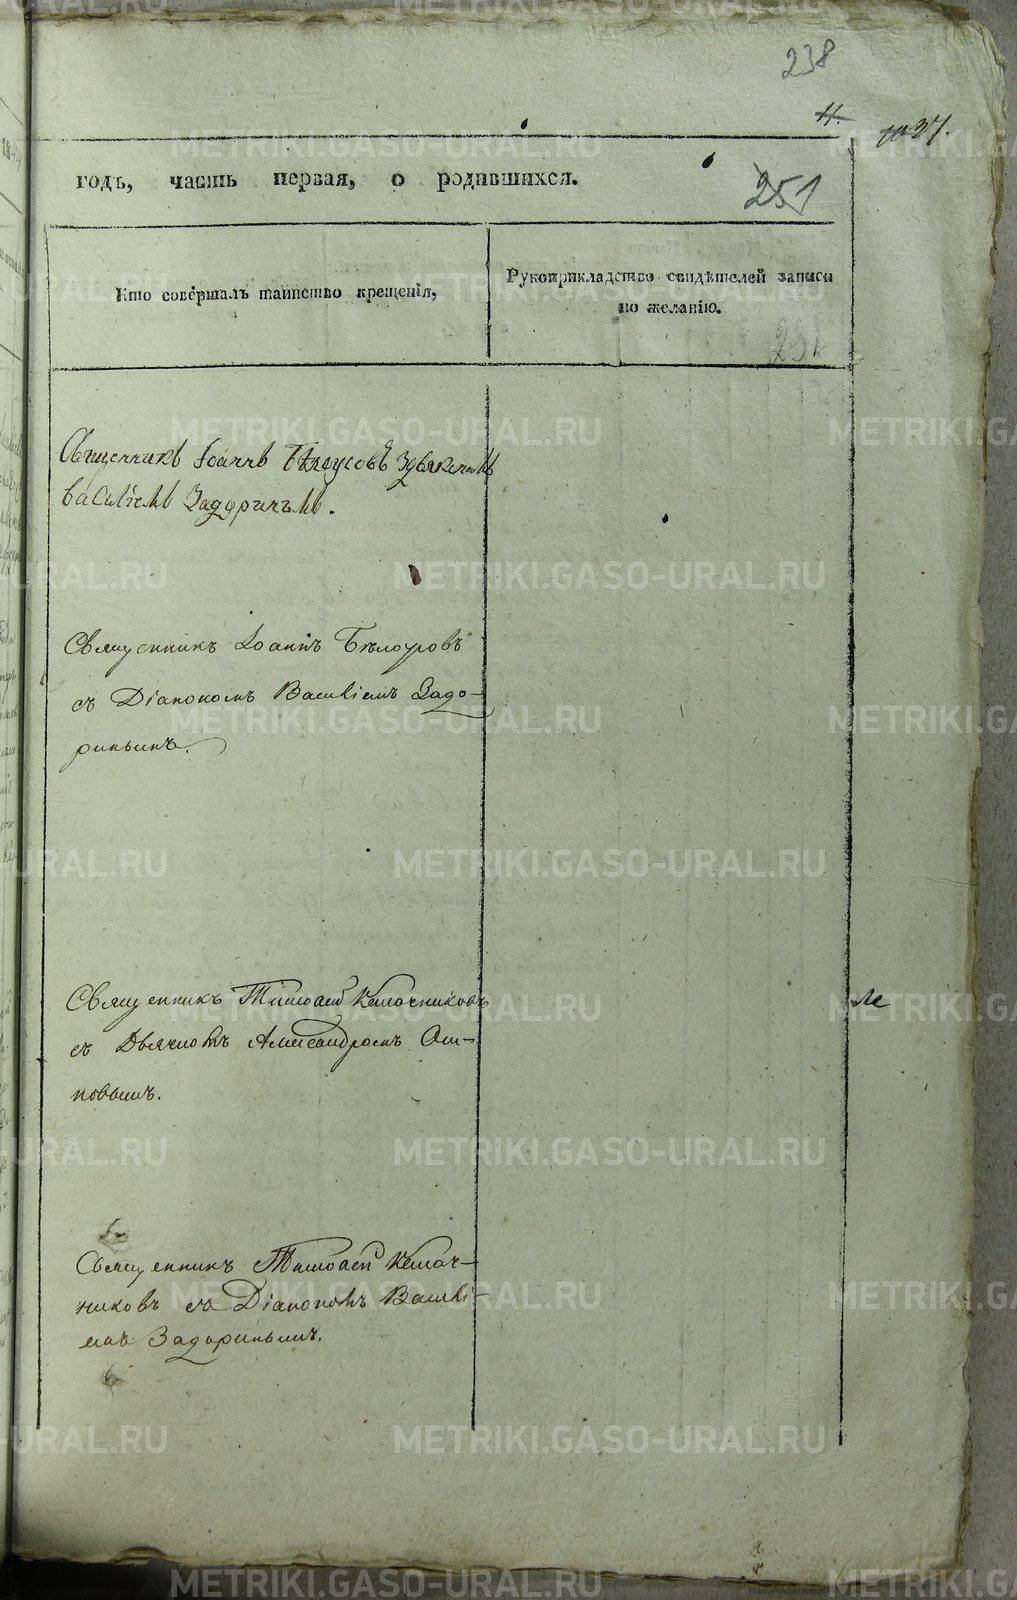 238
11.
27.
годъ, часть первая, о родившихся.
251
Кто совершалъ таинство крещенія,
Рукоприкладство свидѣтелей записи
по желанію.
Священникъ Іоаннъ Бѣлоусовъ
Василіемъ Задоринымъ.
Священникъ Іоаннъ
съ Діакономъ Василіемъ Задо-
ринымъ.
Священникъ Тимофей Ключниковъ
съ Дьячкомъ Александромъ
повымъ.
Священникъ Тимофей Ключ-
никовъ съ Діакономъ Василі-
емъ Задоринымъ.
METRIKI.GASO-URAL.RU